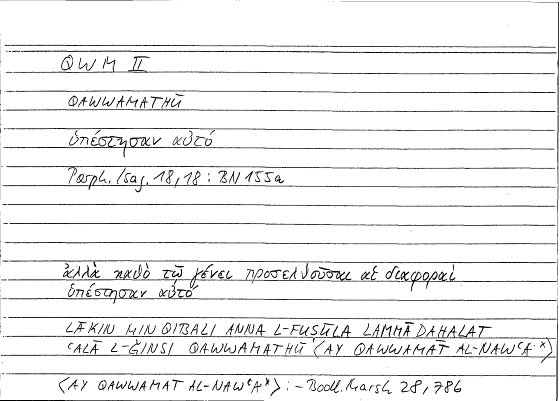 QWM II
QAWWAMATHŪ
ὑπέστησαν αὐτό
Porph. Isag. 18,18 : BN 155a
ἀλλὰ καθὸ τῷ γένει προσελθοῦσαι αἱ διαφοραὶ
ὑπέστησαν αὐτό
LĀKIN MIN QIBALI ANNA L-FUṢŪLA LAMMĀ DAḪALAT
ʿALĀ L-ĞINSI QAWWAMATHŪ ⟨AY QAWWAMAT AL-NAWʿA x⟩
⟨AY QAWWAMAT AL-NAWʿA x⟩ : - Bodl. Marsh 28, 786